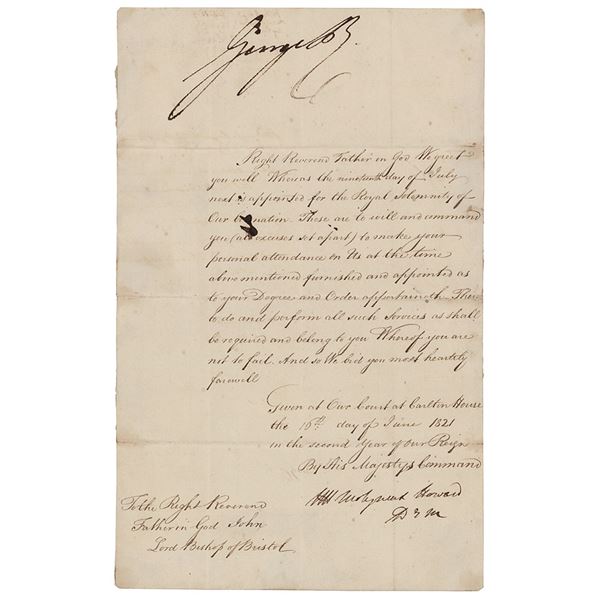 George R
Right Reverend Father in God We greet
you well Whereas the nineteenth day of July
next is appointed for the Royal Solemnity of
Our Coronation. These are to will and command
you (all excuses set apart) to make your
personal attendance on Us at the time
above mentioned furnished and appointed as
to your Degree and Order appertaineth There
to do and perform all such Services as shall
be required and belong to you Whereof you are
not to fail. And so We bid you most heartily
farewell
Given at Our Court at Carlton House
the 16th day of June 1821
in the second Year of Our Reign
By His Majestys Command
Howard
D E M
To the Right Reverend
Father in God John
Lord Bishop of Bristol